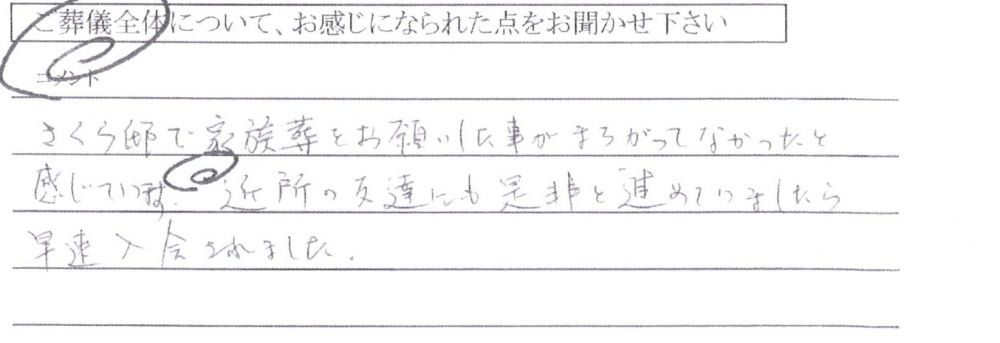 ご葬儀全体について、お感じになられた点をお聞かせ下さい
コメント
さくら邸で家族葬をお願いした事がまちがってなかったと
感じています。近所の友達にも是非と進めていましたら
早速入会されました.